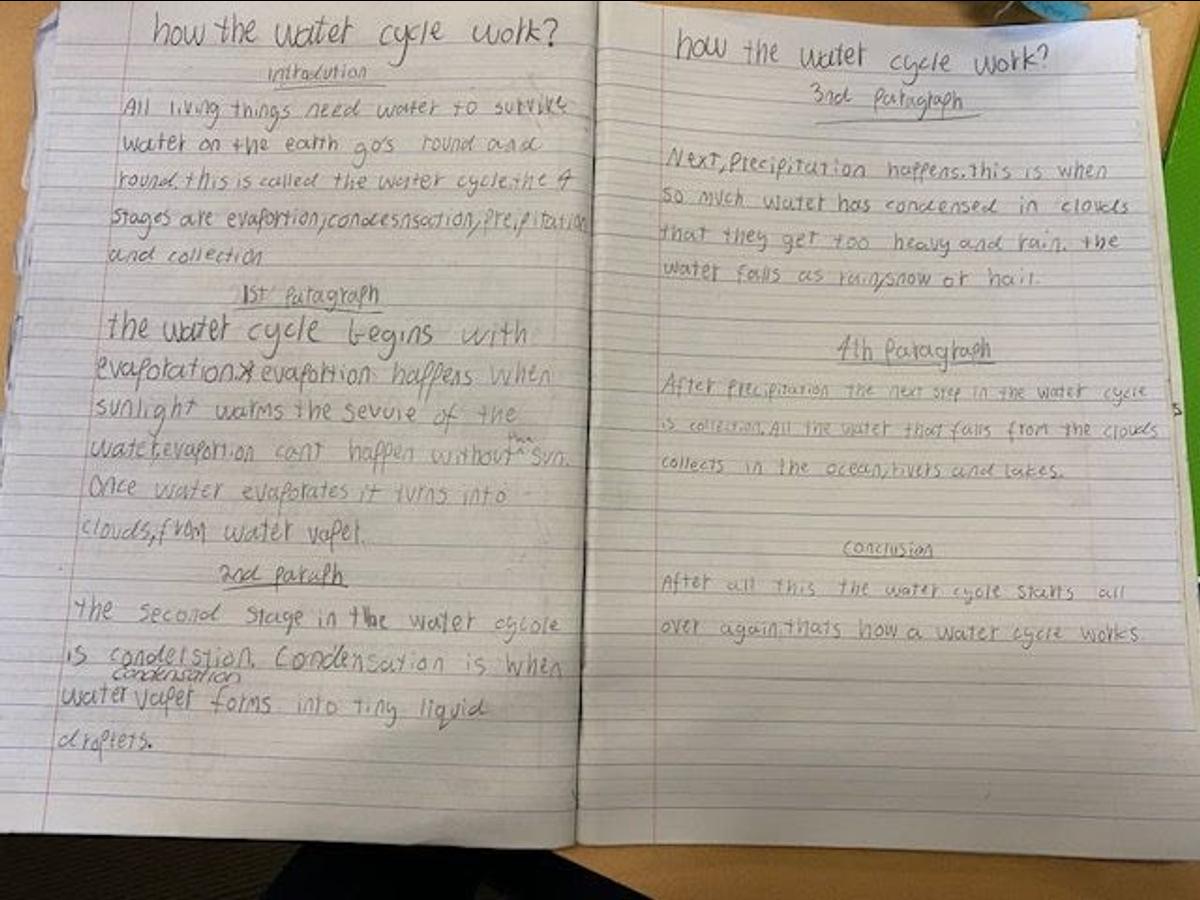 how the water cycle work?
introdution
All living things need water to survive
water on the earth go's round and
round. this is called the water cycle. the 4
stages are evaportion, condesnsaction, Precipitation
and collection
1st Paragraph
the water cycle begins with
evaporation. evaportion happens when
sunlight warms the sevuie of the
water, evaportion cant happen without the sun.
Once water evaporates it turns into
clouds, from water vaper.
2nd paraph
the second stage in the water cylole
is condelstion. Condensation is when
condensation
water vaper forms into tiny liquid
droplets.
how the water cycle work?
3nd Paragraph
Next, Precipitation happens. this is when
so much water has condensed in clouds
that they get too heavy and rain. the
water falls as rain, snow or hail.
4th Paragraph
After Precipitation the next step in the water cycle
is collection. All the water that falls from the clouds
collects in the ocean, rivers and lakes.
conclusion
After all this the water cycle starts all
over again. thats how a water cycle works